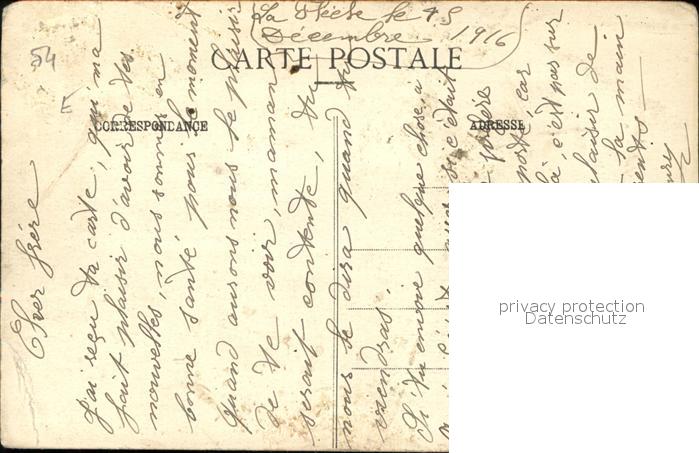 La Flèche le 4 S
Décembre 1916
CARTE POSTALE
CORRESPONDANCE
ADRESSE
54
E
Cher frère
J'ai reçu ta carte, qui m'a
fait plaisir d'avoir de tes
nouvelles, nous sommes en
bonne santé pour le moment
quand aurons nous le plaisir
de te voir, maman
serait contente, tu
nous le dira quand tu
viendras.
Si tu envoie quelque chose, à
si c'était
porté car
là, c'est pas sur
plaisir de
la main
privacy protection
Datenschutz